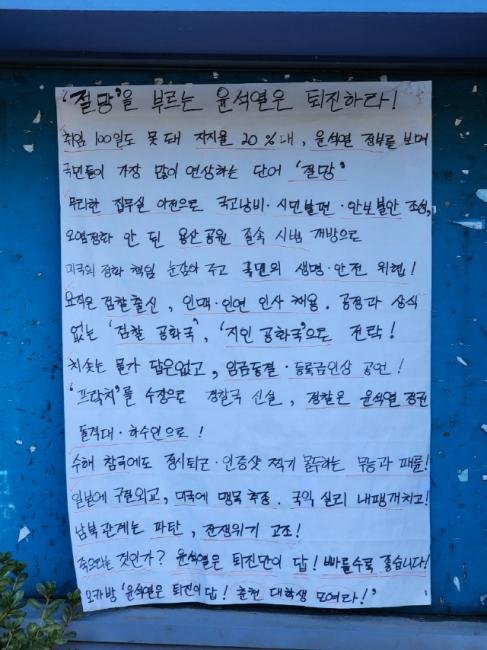 '절망'을 부르는 윤석열은 퇴진하라!
취임 100일도 못 돼 지지율 20%대, 윤석열 정부를 보며
국민들이 가장 많이 연상하는 단어 '절망'
무리한 집무실 이전으로 국고낭비·시민불편·안보불안 조성,
오염정화 안 된 용산공원 졸속 시범 개방으로
미국의 정화 책임 눈감아 주고 국민의 생명·안전 위협!
요직은 검찰출신, 인맥·인연 인사 채용. 공정과 상식
없는 '검찰 공화국', '지인 공화국'으로 전락!
치솟는 물가 답은없고, 임금동결·등록금인상 공언!
'프락치'를 수장으로 경찰국 신설, 경찰은 윤석열 정권
돌격대·하수인으로!
수해 참극에도 정시퇴근·인증샷 찍기 몰두하는 무능과 패륜!
일본에 구걸외교, 미국에 맹목 추종. 국익 실리 내팽개치고!
남북관계는 파탄, 전쟁위기 고조!
죽으라는 것인가? 윤석열은 퇴진만이 답! 빠를수록 좋습니다!
오카방 '윤석열은 퇴진이답! 춘천 대학생 모여라!'